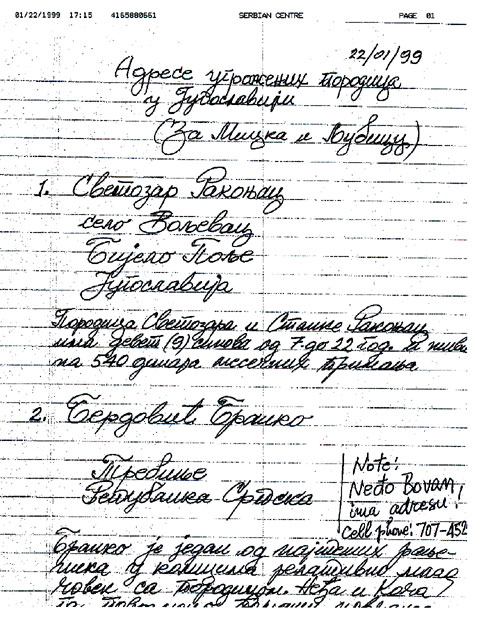 01/22/1999 17:15 4165880661 SERBIAN CENTRE PAGE 01
22/01/99
Адресе угрожених породица
у Југославији
(За Мицка и Љубицу)
1. Светозар Ракоњац
село Вољевац
Бијело Поље
Југославија
Породица Светозара и Станке Ракоњац
има девет (9) синова од 7 до 22 год. и живи
на 540 динара месечних примања.
2. Бердовић Бранко
Требиње
Република Српска
Note:
Neđo Bovan,
ima adresu!
Cell phone: 707-452
Бранко је један од најтежих рање-
ника у колицима релативно млад
човек са породицом. Неђа и